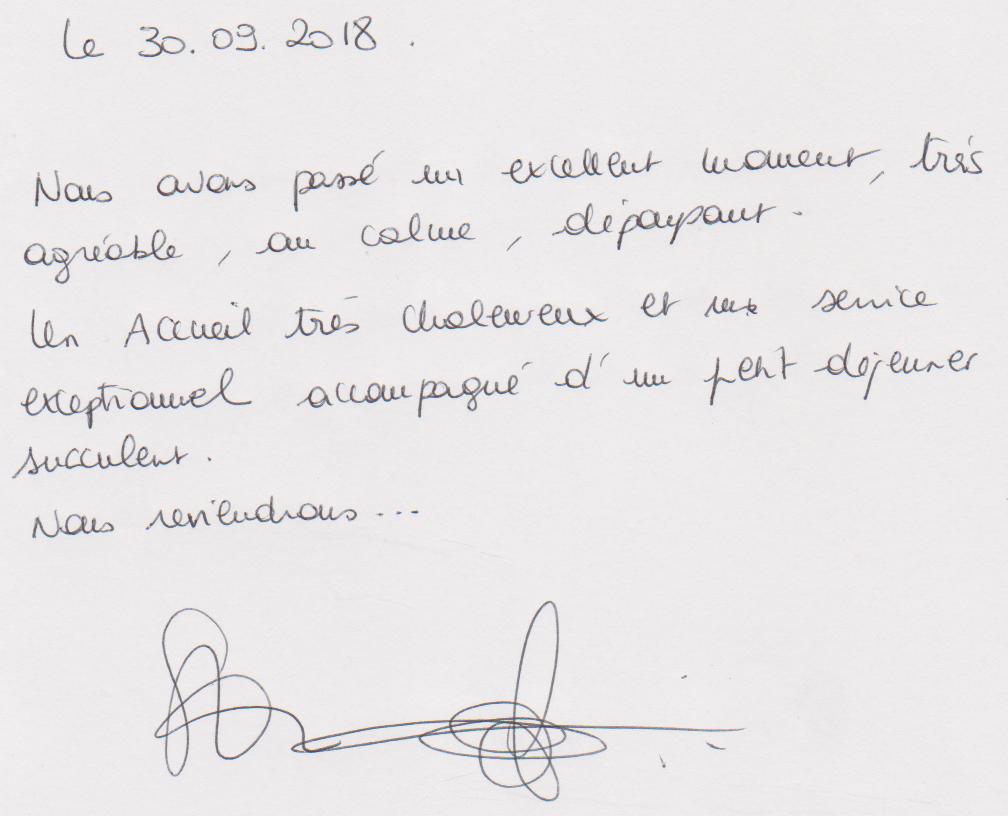 Le 30.09.2018.
Nous avons passé un excellent moment, très
agréable, au calme, dépaysant.
Un Accueil très chaleureux et un service
exceptionnel accompagné d'un petit déjeuner
succulent.
Nous reviendrons...